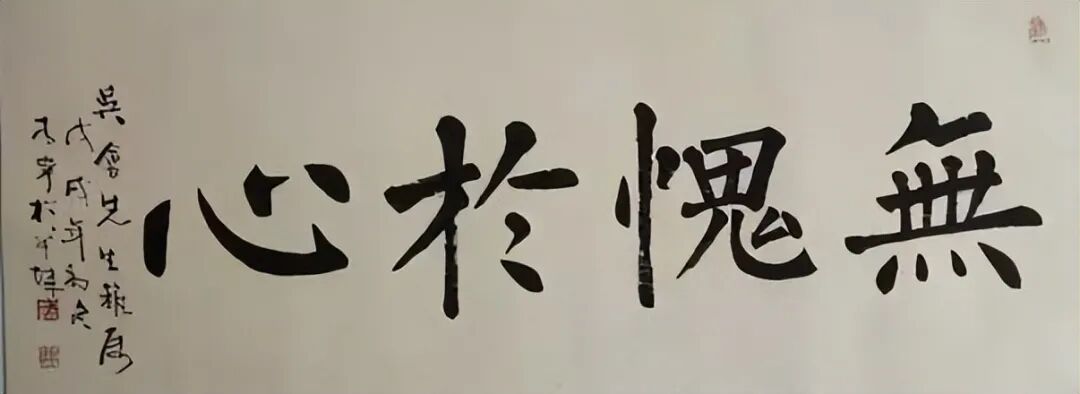 無愧於心
吳會先生雅屬
戊戌年初冬